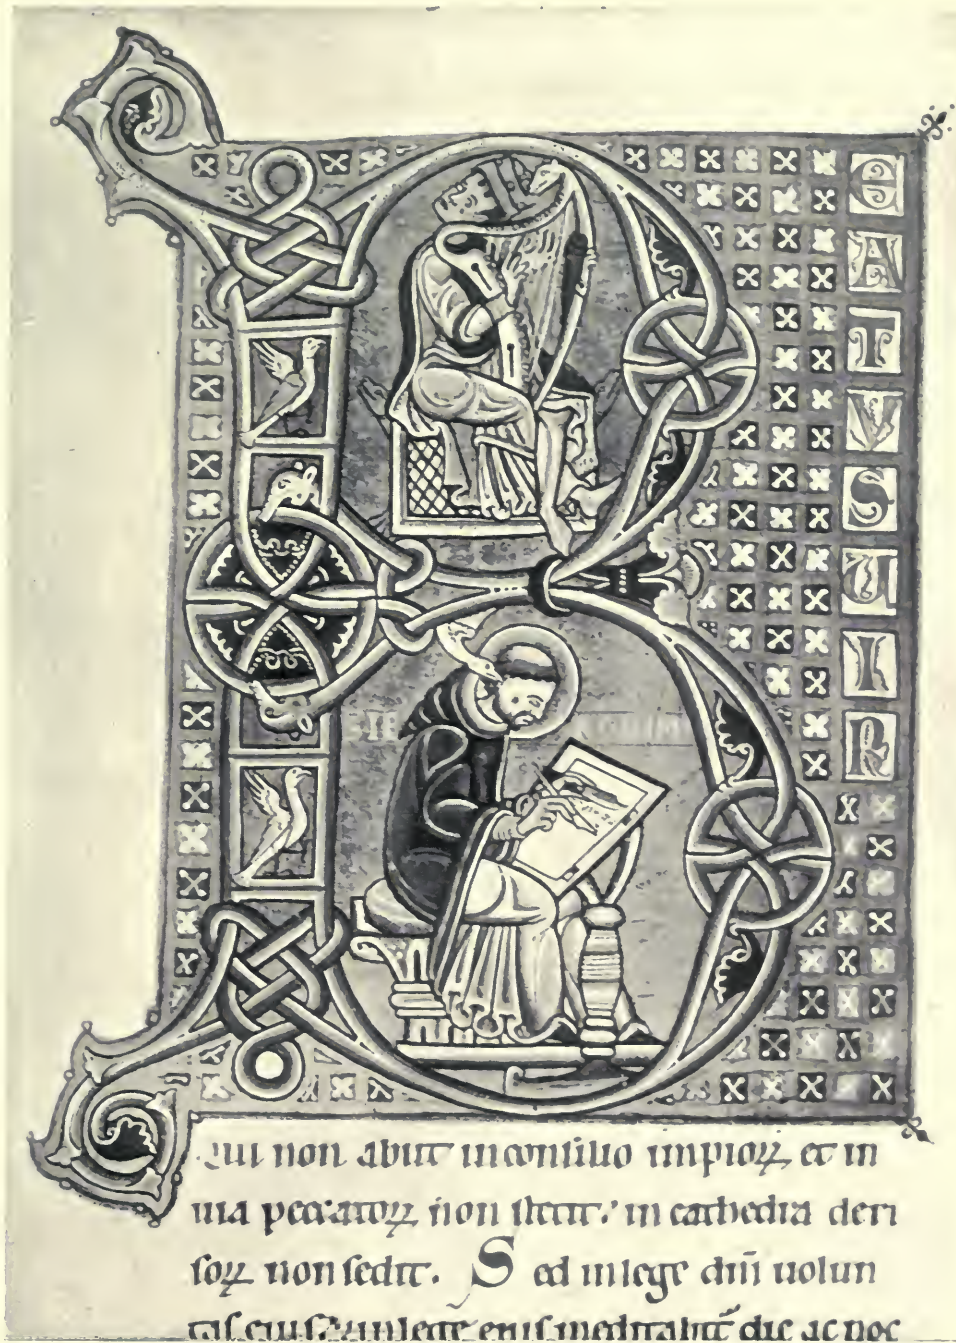 B
E
A
T
V
S
U
I
R
qui non abiit in consilio impioꝝ et in
uia peccatoꝝ non stetit. in cathedra deri
soꝝ non sedit. Sed in lege dn̄i uolun
tas eius & in lege eius meditabit᷑ die ac noc